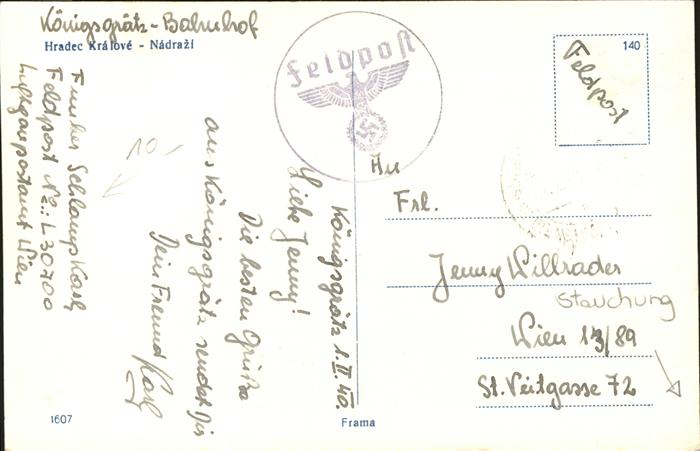 Königsgrätz - Bahnhof
Hradec Králové - Nádraží
Feldpost
140
Feldpost
Funker Schlaup Karl
Feldpost Nr.: L 30700
Luftgaupostamt Wien
10,-
Königsgrätz 1.II.40.
Liebe Jenny!
Die besten Grüße
aus Königsgrätz sendet Dir
Dein Freund Karl
An
Frl.
Jenny Willrader
Stauchung
Wien 13/89
St. Veitgasse 72
1607
Frama